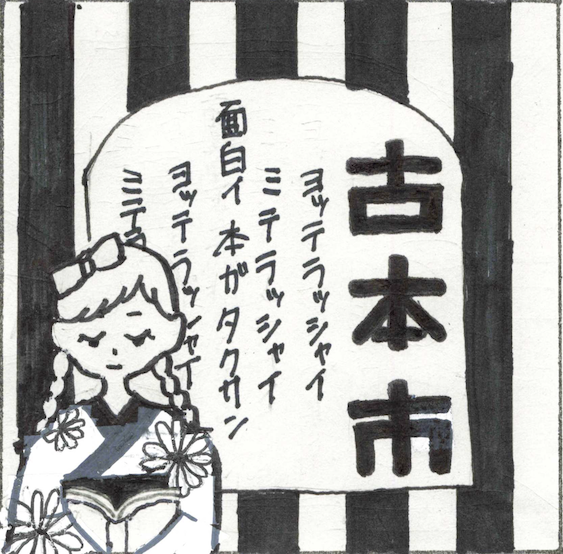 古本市
ヨッテラッシャイ
ミテラッシャイ
面白イ本ガタクサン
ヨッテラッシャイ
ミテ